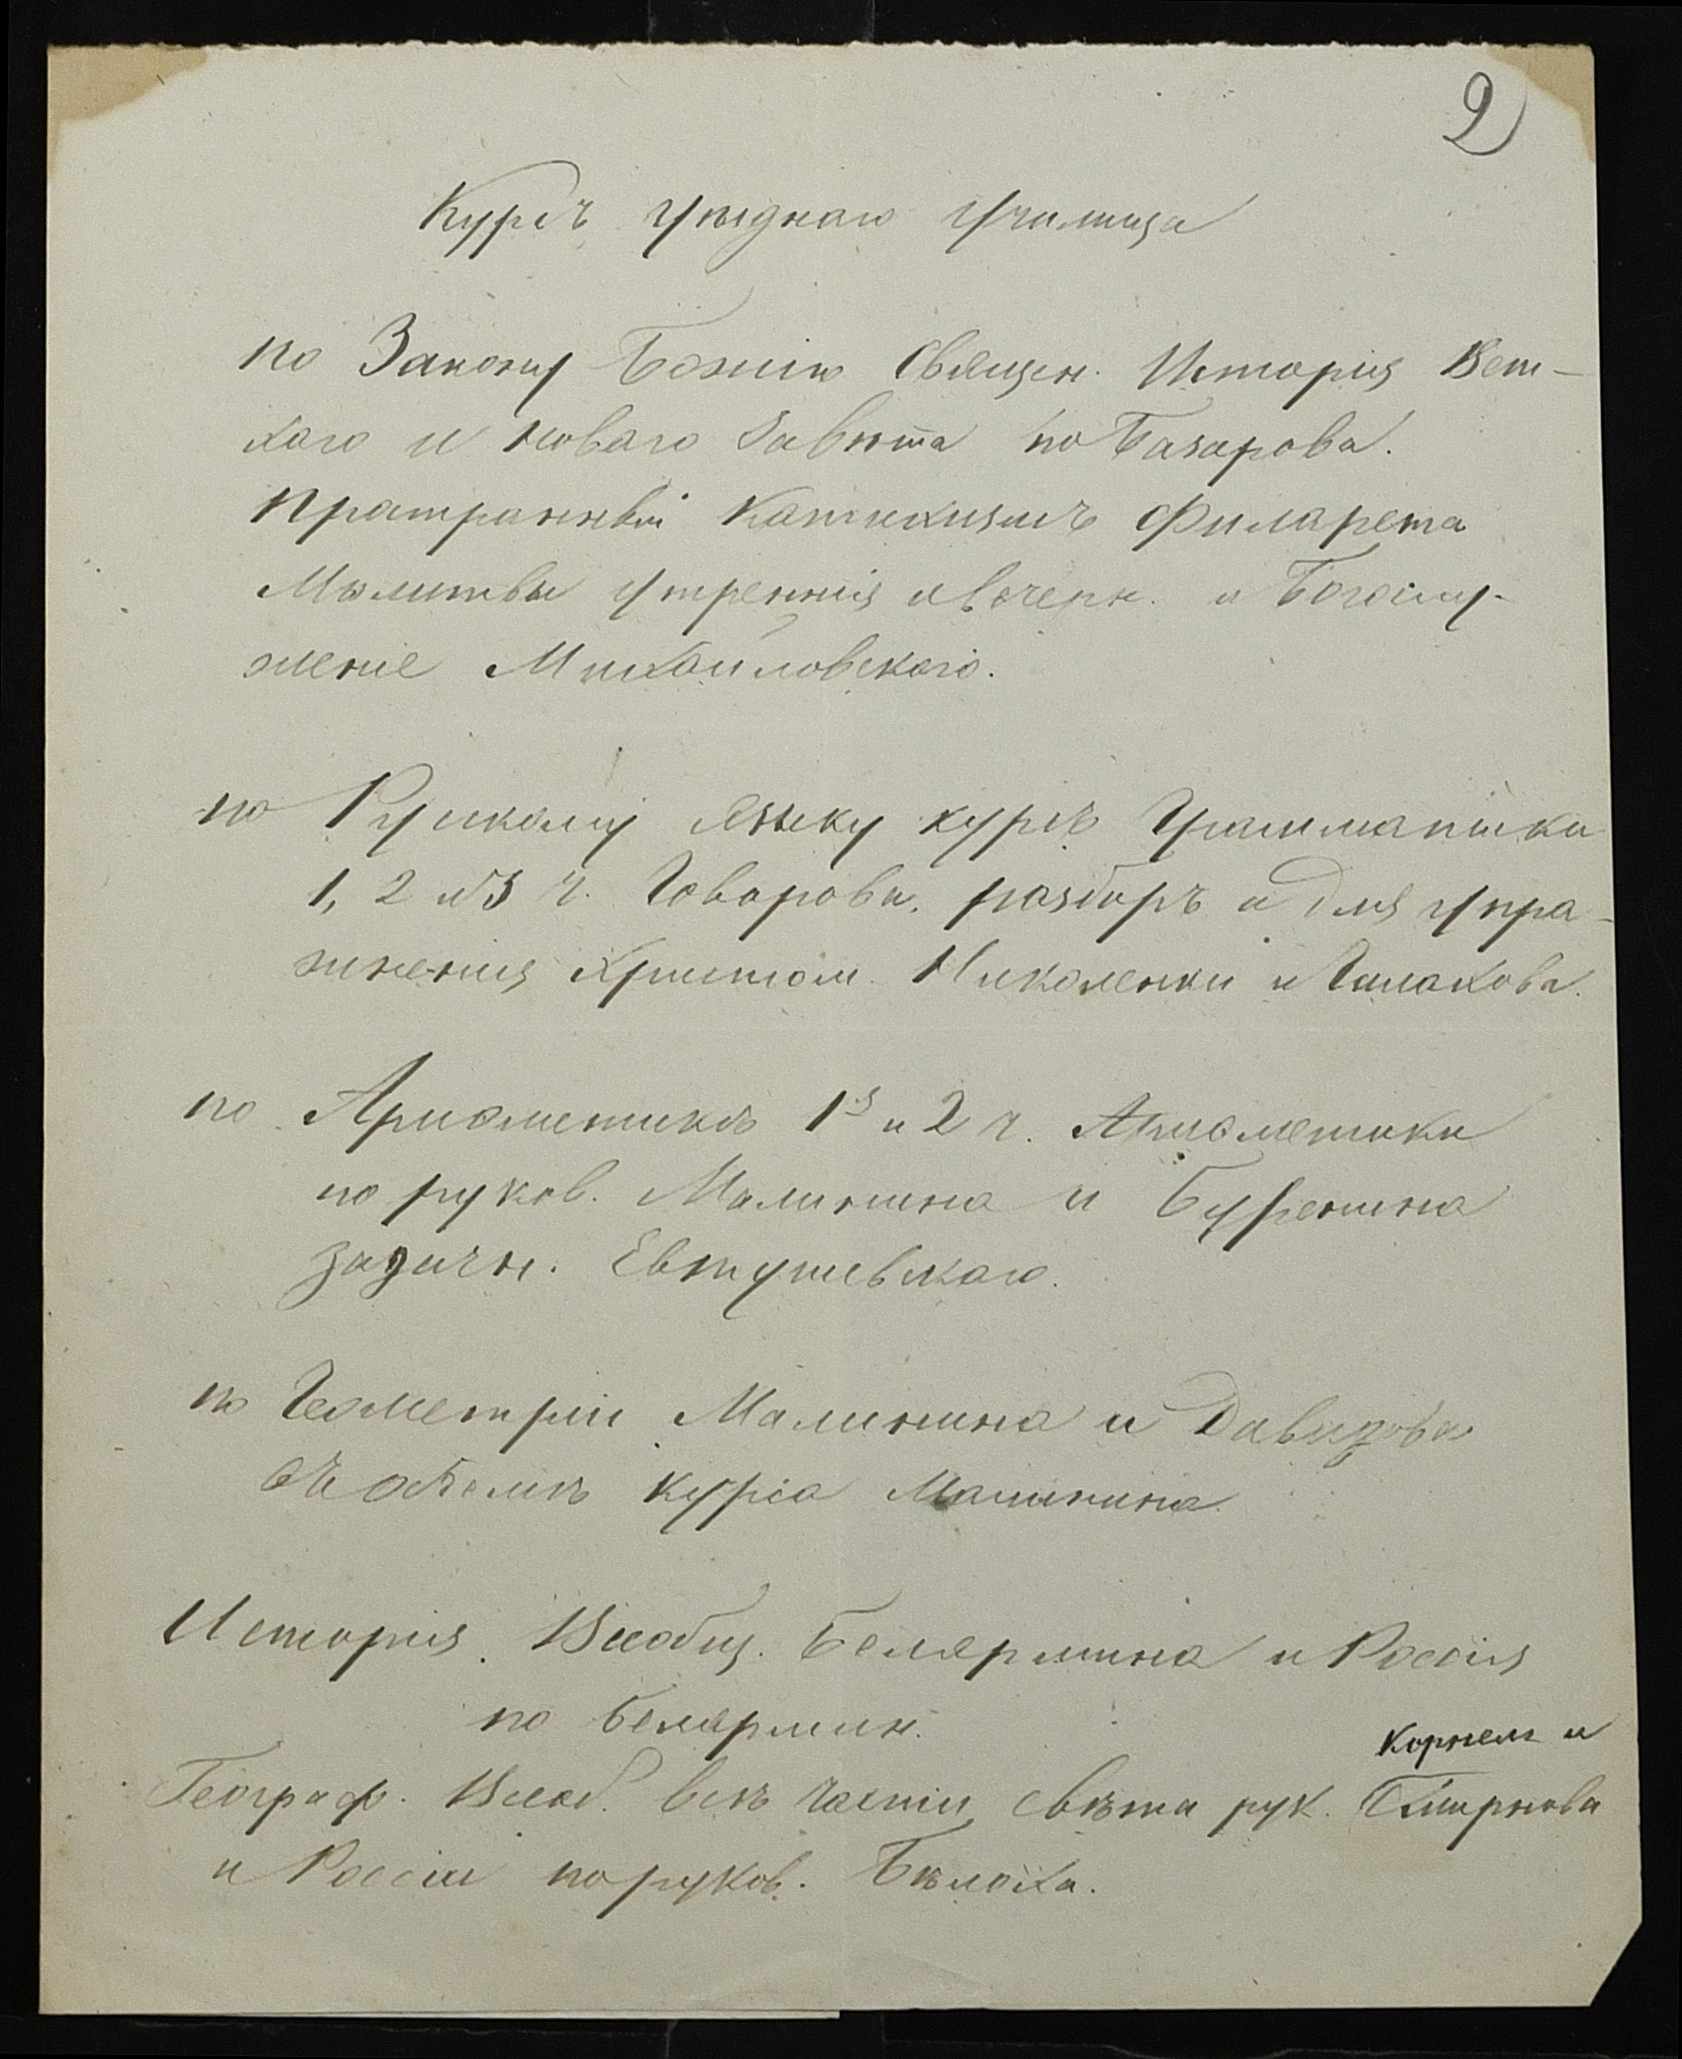 2
Курсъ уѣзднаго училища
по Закону Божію Священ. Исторія Вет-
хаго и новаго завѣта по Базарова.
пратранный Катихизисъ Филарета
Молитвы утреннія и вечерн. и Богослу-
женіе Михайловскаго.
по Рускому языку курсъ Грамматики
1, 2 и 3 ч. Говорова. разборъ и для упра-
жненія Христом. Николенки и Галахова.
по Ариѳметикѣ 1я и 2 ч. Ариѳметики
по руков. Малинина и Буренина
задачн. Евтушевскаго.
по Геометріи Малинина и Давидова
въ обѣемѣ курса Малинина.
Исторія. Всеобщ. Белярмина и Россія
по Белярмин.
Корнель и
Географ. Всеоб. всѣ части свѣта рук. Смирнова
и Россіи по руков. Бѣлоха.